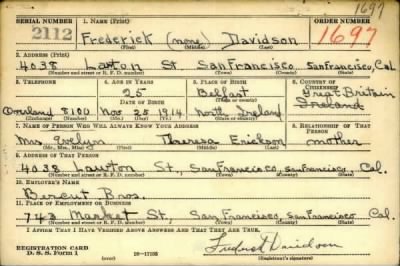 1697
SERIAL NUMBER 1. NAME (Print) ORDER NUMBER
2112 Frederick (none) Davidson 1697
(First) (Middle) (Last)
2. ADDRESS (Print)
4038 Lawton St. San Francisco, San Francisco, Cal.
(Number and street or R. F. D. number) (Town) (County) (State)
3. TELEPHONE 4. AGE IN YEARS 5. PLACE OF BIRTH 6. COUNTRY OF CITIZENSHIP
25 Belfast Great Britain
DATE OF BIRTH (Town or county) Ireland
Overland 8100 Nov 25 1914 North Ireland
(Exchange) (Number) (Mo.) (Day) (Yr.) (State or country)
7. NAME OF PERSON WHO WILL ALWAYS KNOW YOUR ADDRESS 8. RELATIONSHIP OF THAT PERSON
Mrs Evelyn Theresa Erickson mother
(Mr., Mrs., Miss) (First) (Middle) (Last)
9. ADDRESS OF THAT PERSON
4038 Lawton St., San Francisco, San Francisco, Cal.
(Number and street or R. F. D. number) (Town) (County) (State)
10. EMPLOYER'S NAME
Bercut Bros.
11. PLACE OF EMPLOYMENT OR BUSINESS
743 Market St, San Francisco, San Francisco Cal.
(Number and street or R. F. D. number) (Town) (County) (State)
I AFFIRM THAT I HAVE VERIFIED ABOVE ANSWERS AND THAT THEY ARE TRUE.
REGISTRATION CARD
D. S. S. Form 1 16—17105 Frederick Davidson